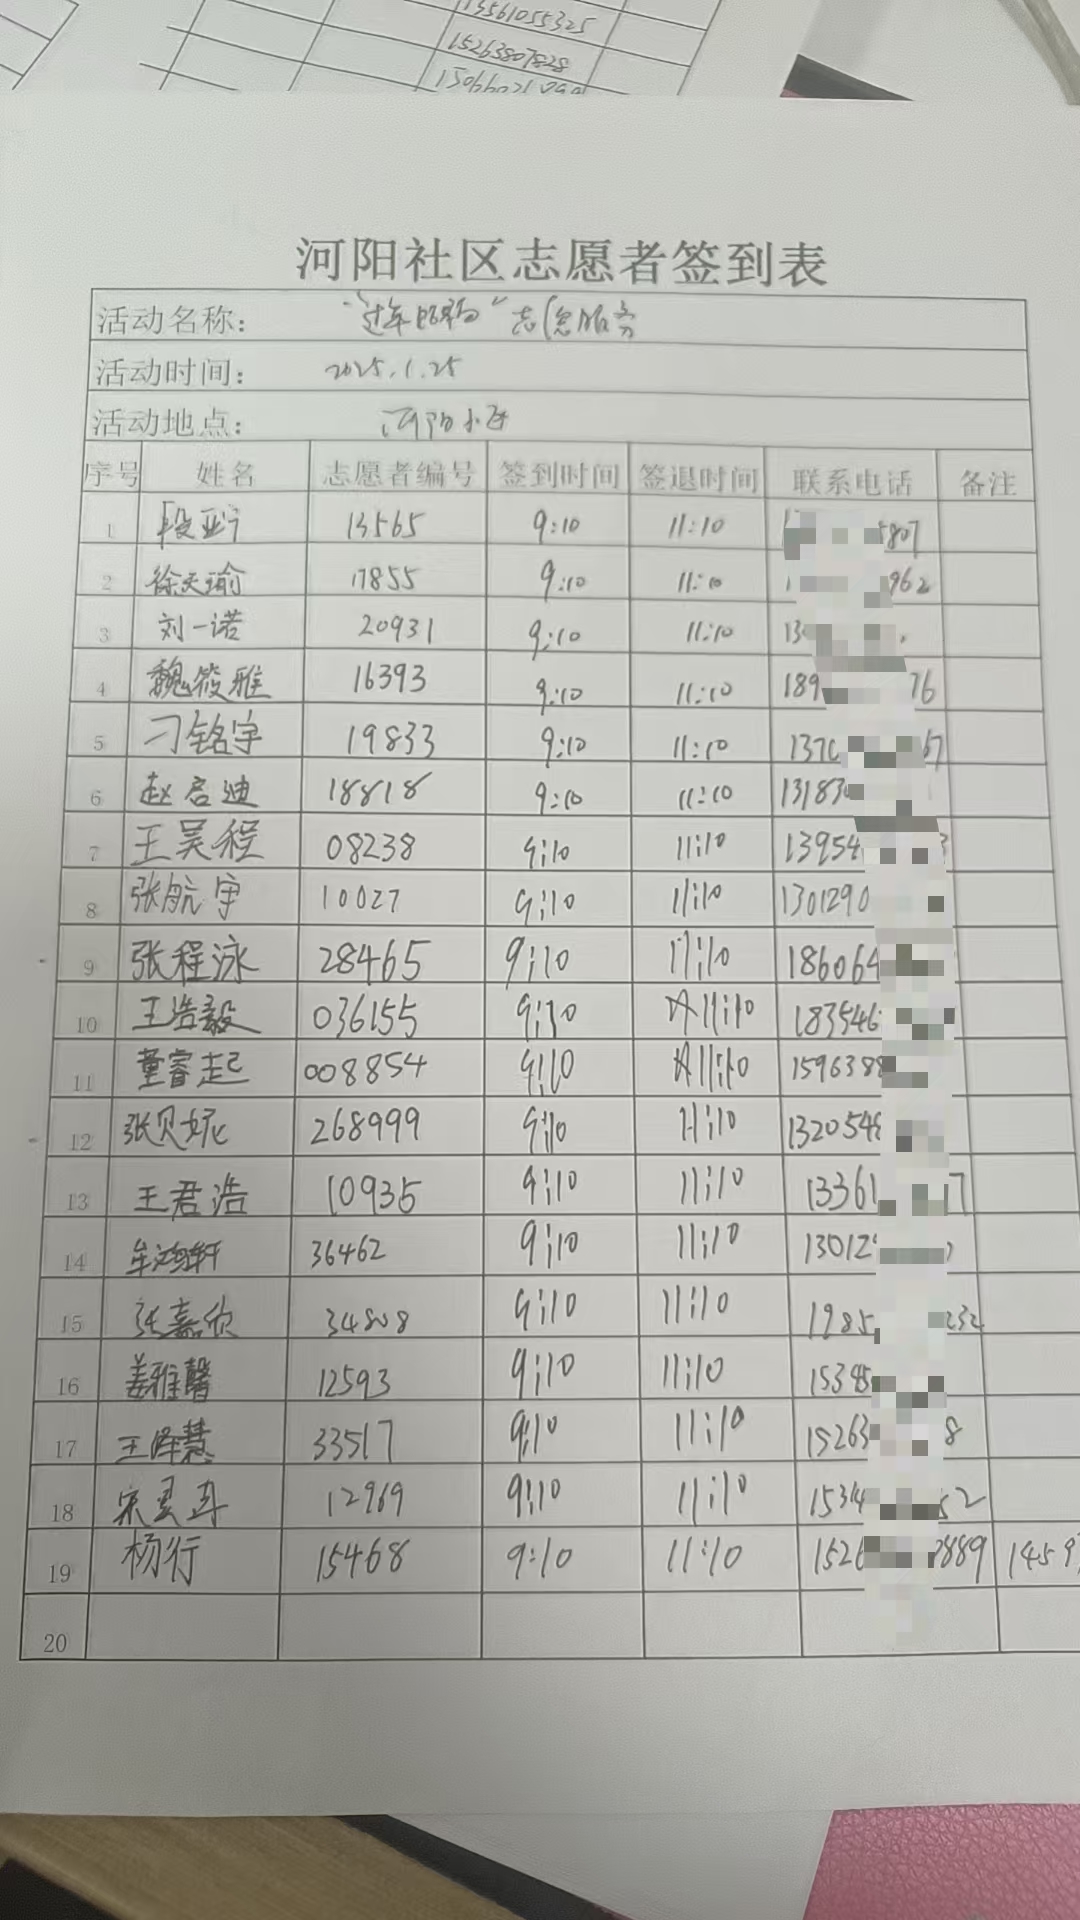 13561055325
15263807828
河阳社区志愿者签到表
活动名称： 志愿服务
活动时间： 2025.1.25
活动地点： 河阳小区
序号 姓名 志愿者编号 签到时间 签退时间 联系电话 备注
1 段亚宁 13565 9:10 11:10 5807
2 徐天瑜 17855 9:10 11:10 1 962
3 刘一诺 20931 9:10 11:10 13
4 魏筱雅 16393 9:10 11:10 189 76
5 刁铭宇 19833 9:10 11:10 137 67
6 赵启迪 18818 9:10 11:10 13183
7 王昊程 08238 9:10 11:10 13954 3
8 张航宇 10027 9:10 11:10 1301290
9 张程泳 28465 9:10 11:10 186064
10 王浩毅 036155 9:10 11:10 183546
11 董睿起 008854 9:10 11:10 1596388
12 张贝妮 268999 9:10 11:10 1320548
13 王君浩 10935 9:10 11:10 13361 17
14 牟鸿轩 36462 9:10 11:10 13012
15 张嘉欣 34808 9:10 11:10 1985 232
16 姜雅馨 12593 9:10 11:10 15385
17 王泽慧 33517 9:10 11:10 15263 8
18 宋 12969 9:10 11:10 1534 52
19 杨行 15468 9:10 11:10 1526 2889 1459
20